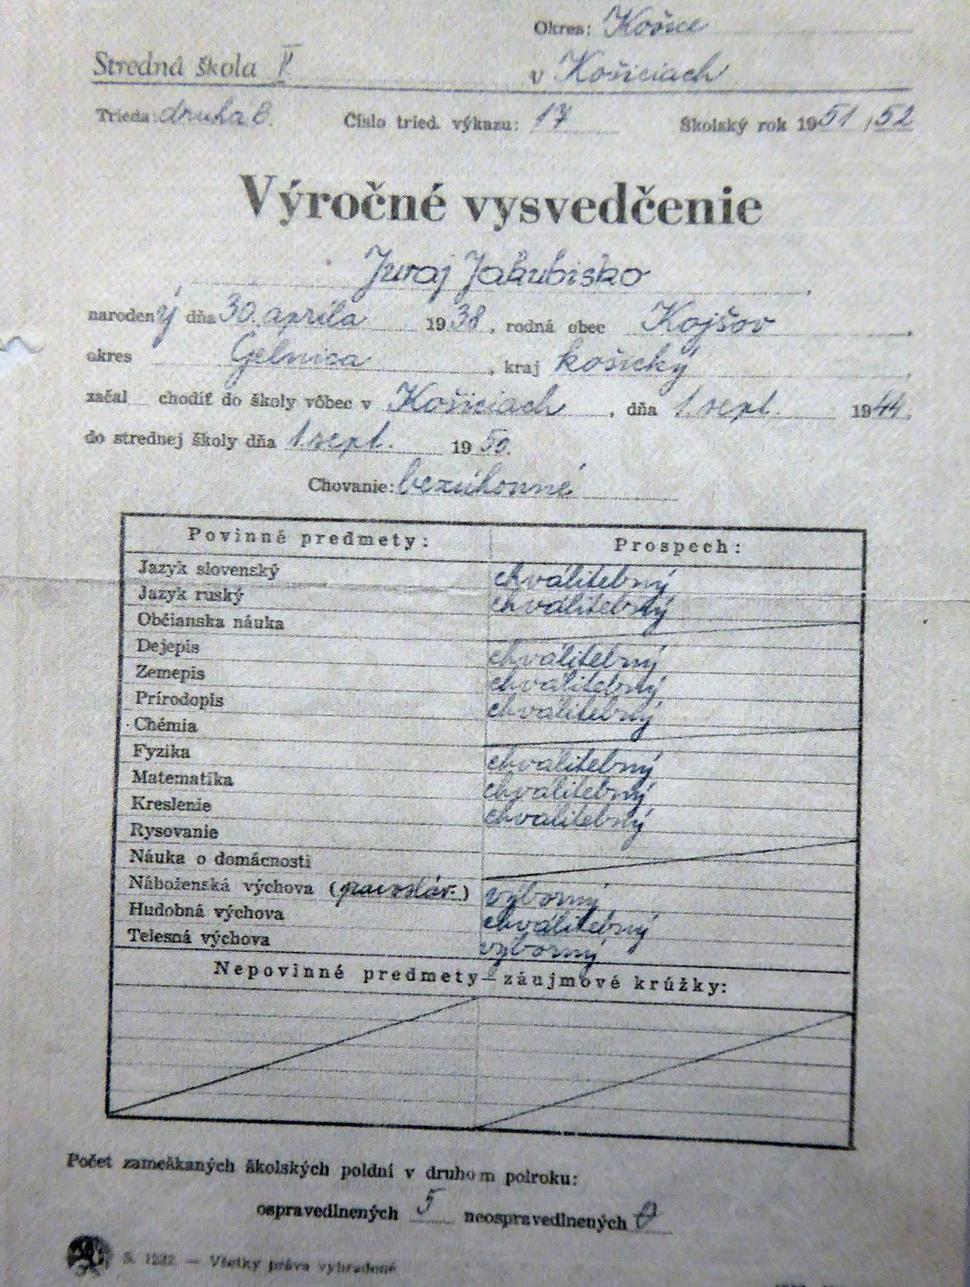 Okres: Košice
Stredná škola II. v Košiciach
Trieda: druhá B. Číslo tried. výkazu: 17 Školský rok 1951/52
Výročné vysvedčenie
Juraj Jakubisko
narodený dňa 30. apríla 1938, rodná obec Kojšov
okres Gelnica, kraj košický
začal chodiť do školy vôbec v Košiciach, dňa 1. sept. 1944.
do strednej školy dňa 1. sept. 1950.
Chovanie: bezúhonné
Povinné predmety: Prospech:
Jazyk slovenský chválitebný
Jazyk ruský chválitebný
Občianska náuka
Dejepis chválitebný
Zemepis chválitebný
Prírodopis chválitebný
Chémia
Fyzika chválitebný
Matematika chválitebný
Kreslenie chválitebný
Rysovanie
Náuka o domácnosti
Náboženská výchova (pravosláv.) výborný
Hudobná výchova chválitebný
Telesná výchova výborný
Nepovinné predmety — záujmové krúžky:
Počet zameškaných školských poldní v druhom polroku:
ospravedlnených 5 neospravedlnených 0
Š. 1232 — Všetky práva vyhradené